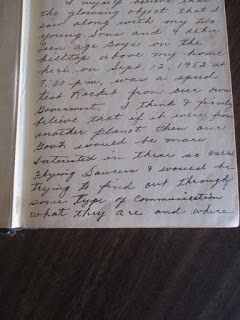 I myself believe that
the glowing object that I
saw along with my two
young Sons and 4 other
teen age boys on the
hilltop above my home
here on Sept. 12, 1952 at
7:30 p.m. was a speed
test Rocket from our own
Government. I think & firmly
believe that if it were from
another planet then our
Govt. would be more
Interested in these so called
Flying Saucers & would be
trying to find out through
some type of communication
what they are and where